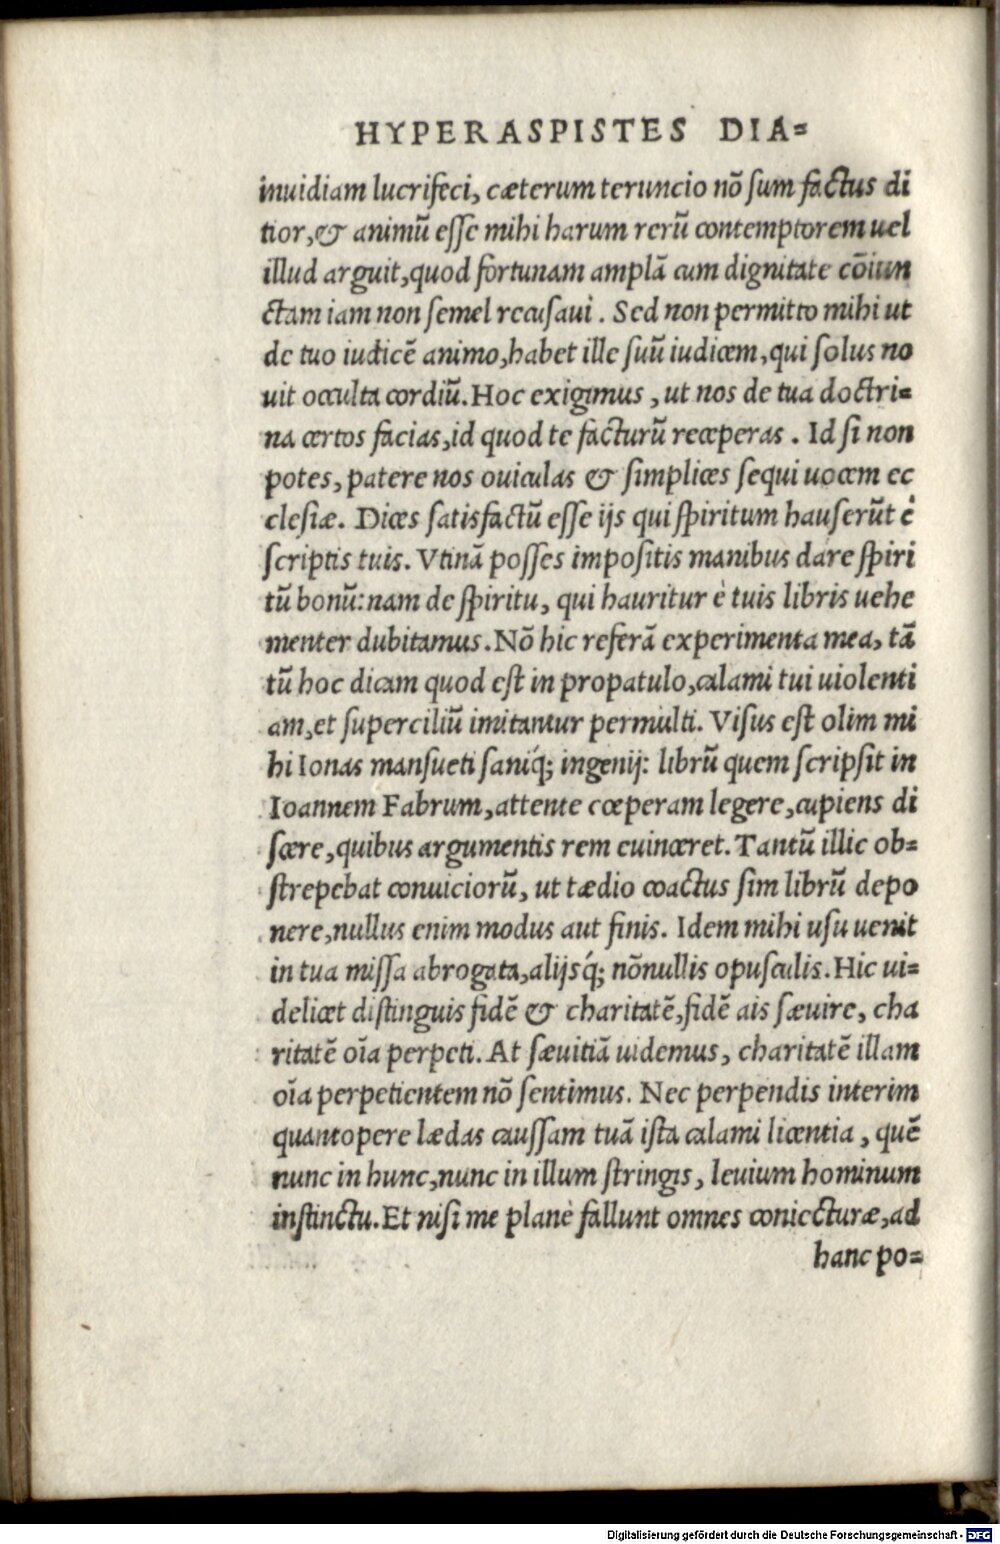 HYPERASPISTES DIA=
inuidiam lucrifeci, cæterum teruncio nõ ſum factus di
tior,& animũ eſſe mihi harum rerũ contemptorem uel
illud arguit,quod fortunam amplã cum dignitate cõiun
ctam iam non ſemel recuſaui. Sed non permitto mihi ut
de tuo iudicẽ animo,habet ille ſuũ iudicem,qui ſolus no
uit occulta cordiũ.Hoc exigimus, ut nos de tua doctri=
na certos facias,id quod te facturũ receperas. Id ſi non
potes, patere nos ouiculas & ſimplices ſequi uocem ec
cleſiæ. Dices ſatisfactũ eſſe ijs qui ſpiritum hauſerũt è
ſcriptis tuis. Vtinã poſſes impoſitis manibus dare ſpiri
tũ bonũ:nam de ſpiritu, qui hauritur è tuis libris uehe
menter dubitamus.Nõ hic referã experimenta mea, tã
tũ hoc dicam quod eſt in propatulo,calami tui uiolenti
am,et ſuperciliũ imitantur permulti. Viſus eſt olim mi
hi Ionas manſueti ſaniq́; ingenij: librũ quem ſcripſit in
Ioannem Fabrum,attente cœperam legere,cupiens di
ſcere,quibus argumentis rem euinceret.Tantũ illic ob=
ſtrepebat conuiciorũ, ut tædio coactus ſim librũ depo
nere,nullus enim modus aut finis. Idem mihi uſu uenit
in tua miſſa abrogata,alijsq́; nõnullis opuſculis.Hic ui=
delicet diſtinguis fidẽ & charitatẽ,fidẽ ais ſæuire, cha
ritatẽ oĩa perpeti. At ſæuitiã uidemus, charitatẽ illam
oĩa perpetientem nõ ſentimus. Nec perpendis interim
quantopere lædas cauſſam tuã iſta calami licentia, quẽ
nunc in hunc,nunc in illum ſtringis, leuium hominum
inſtinctu.Et niſi me planè fallunt omnes coniecturæ,ad
hanc po=
Digitalisierung gefördert durch die Deutsche Forschungsgemeinschaft - DFG